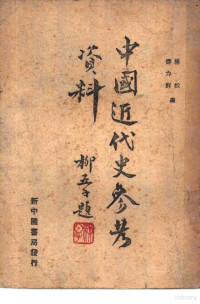 楊松
鄧力群
編
中國近代史參考
資料
柳亞子題
新中國書局發行